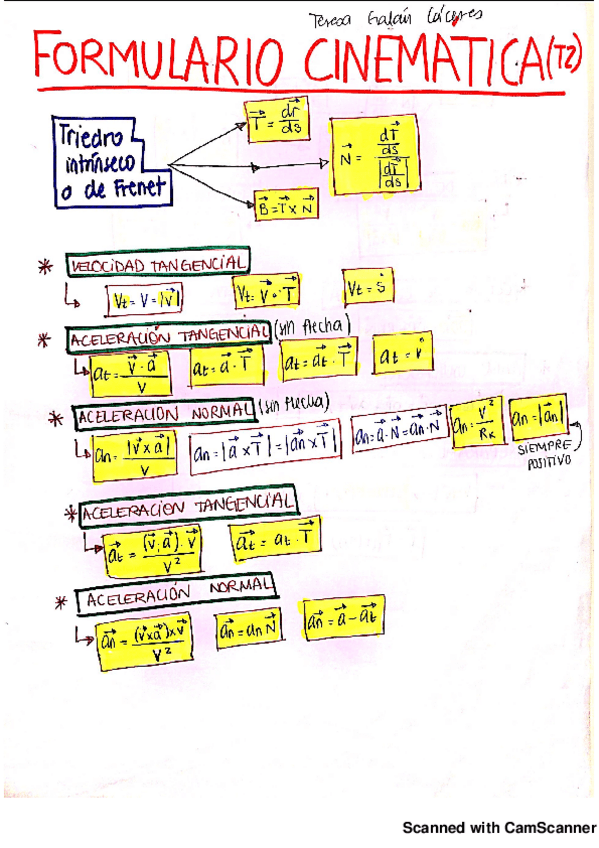 Teresa Galán Cáceres
FORMULARIO CINEMATICA (T2)
Triedro
intrínseco
o de Frenet
T⃗ = dr⃗/ds
N⃗ = (dT⃗/ds) / |dT⃗/ds|
B⃗ = T⃗ x N⃗
* VELOCIDAD TANGENCIAL
Vt = V = |V⃗|   Vt = V⃗ · T⃗   Vt = ṡ
* ACELERACIÓN TANGENCIAL (sin flecha)
at = v⃗ · a⃗ / v   at = a⃗ · T⃗   at = a⃗t · T⃗   at = v̇
* ACELERACION NORMAL (sin flecha)
an = |v⃗ x a⃗| / v   an = |a⃗ x T⃗| = |a⃗n x T⃗|   an = a⃗ · N⃗ = a⃗n · N⃗   an = v² / Rk   an = |a⃗n|
SIEMPRE
POSITIVO
* ACELERACION TANGENCIAL
a⃗t = (v⃗ · a⃗) · v⃗ / v²   a⃗t = at · T⃗
* ACELERACIÓN NORMAL
a⃗n = (v⃗ x a⃗) x v⃗ / v²   a⃗n = an N⃗   a⃗n = a⃗ - a⃗t
Scanned with CamScanner